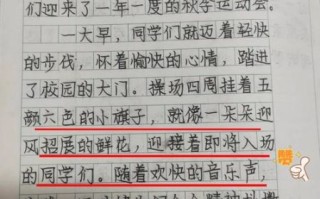 们迎来了一年一度的秋学运动会。
一大早，同学们就迈着轻快
的步伐，怀着愉快的心情，踏进
了校园的大门。操场四周挂着五
颜六色的小旗子，就像一朵朵迎
风招展的鲜花，迎接着即将入场
的同学们。随着欢快的音乐声，
赞